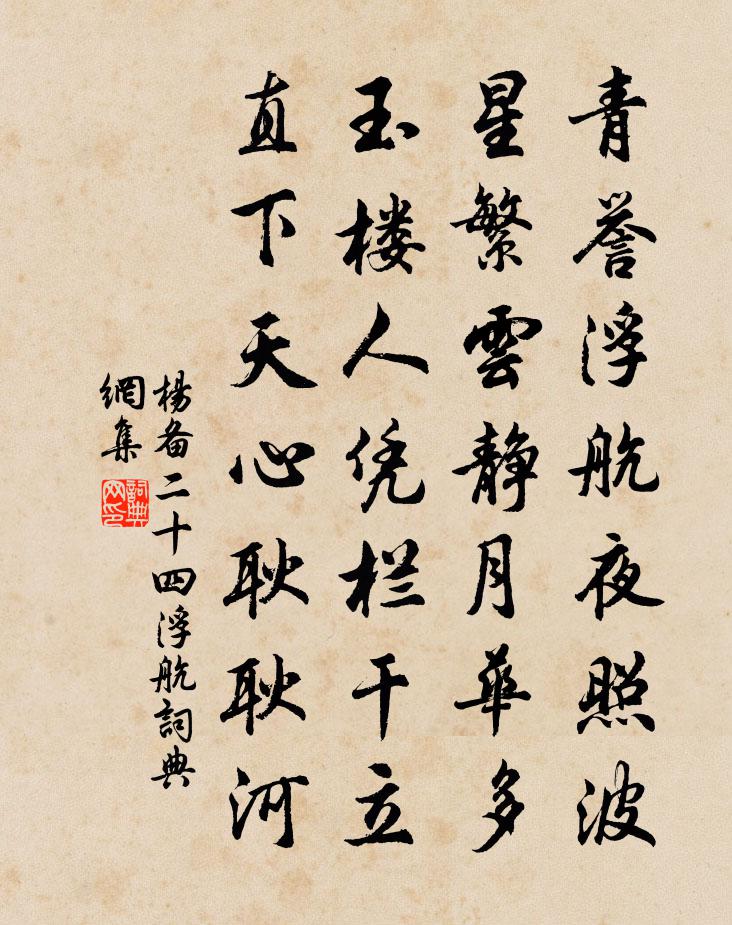 青誉浮航夜照波
星繁雲静月華多
玉楼人凭栏干立
直下天心耿耿河
楊备二十四浮航詞典
網集
詞典
网印